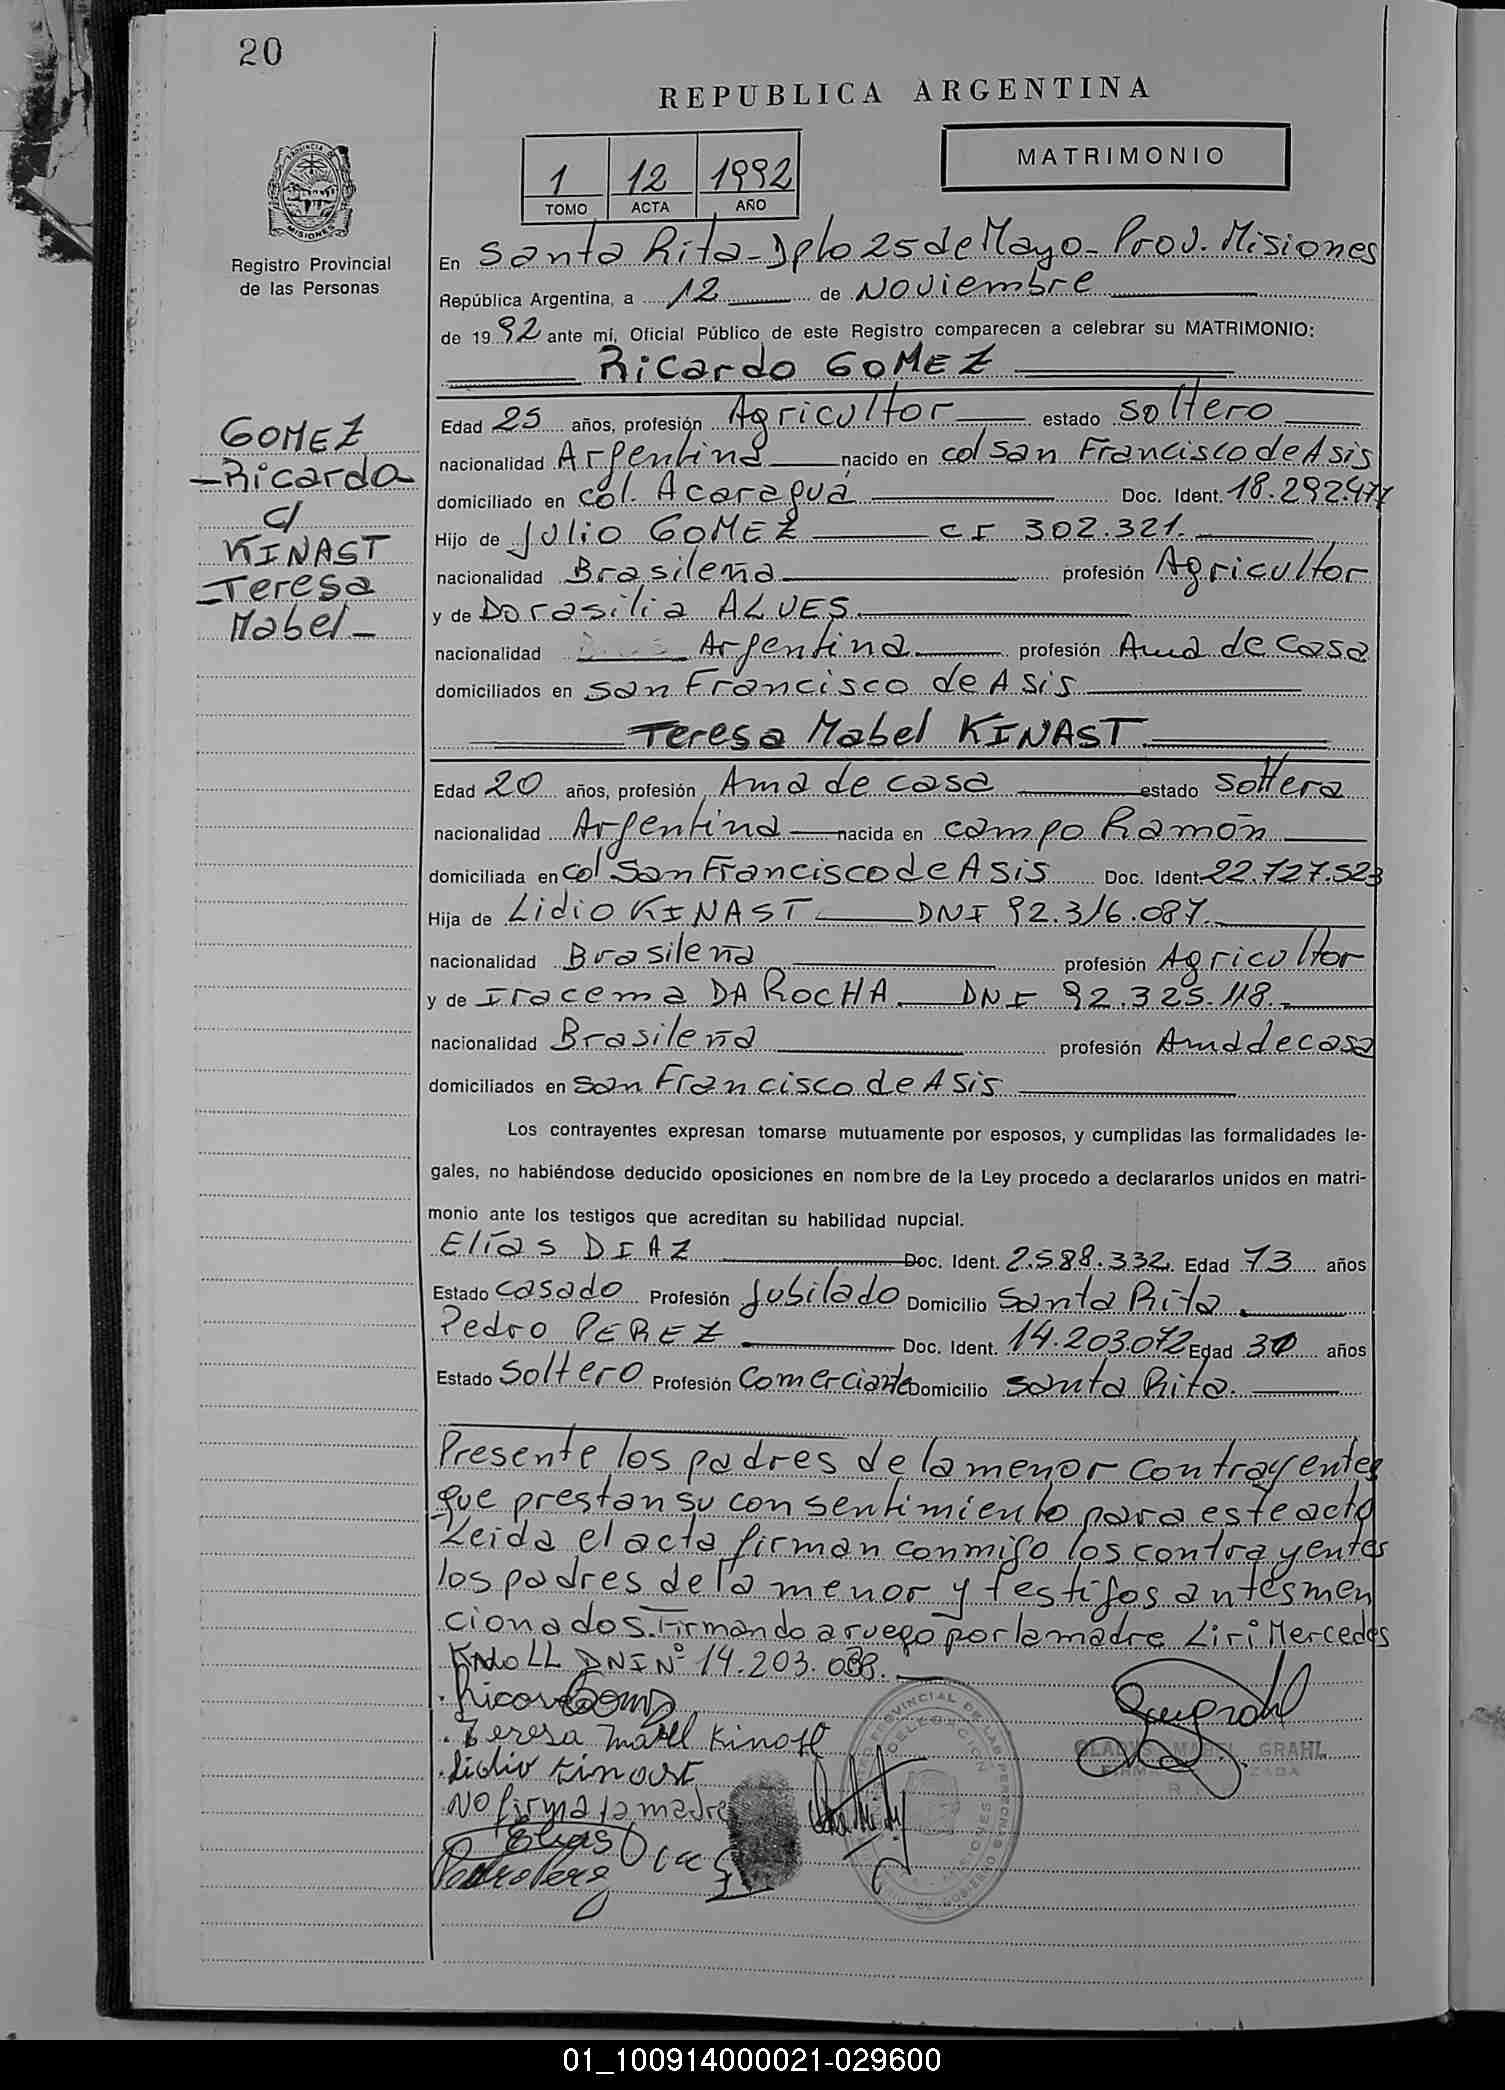 20
REPUBLICA ARGENTINA
1 12 1992
TOMO ACTA AÑO
MATRIMONIO
PROVINCIA DE MISIONES
Registro Provincial
de las Personas
En Santa Rita - Dpto 25 de Mayo - Prov. Misiones
República Argentina, a 12 de Noviembre
de 1992 ante mí, Oficial Público de este Registro comparecen a celebrar su MATRIMONIO:
Ricardo GOMEZ
GOMEZ
-Ricardo-
c/
KINAST
-Teresa
Mabel-
Edad 25 años, profesión Agricultor estado soltero
nacionalidad Argentina nacido en col San Francisco de Asis
domiciliado en col. Acaraguá Doc. Ident. 18.292.477
Hijo de Julio GOMEZ CI 302.321.
nacionalidad Brasileña profesión Agricultor
y de Dorasilia ALVES.
nacionalidad Argentina profesión Ama de casa
domiciliados en San Francisco de Asis
Teresa Mabel KINAST
Edad 20 años, profesión Ama de casa estado soltera
nacionalidad Argentina nacida en campo Ramón
domiciliada en col San Francisco de Asis Doc. Ident. 22.727.523
Hija de Lidio KINAST DNI 92.316.087.
nacionalidad Brasileña profesión Agricultor
y de Iracema DA ROCHA DNI 92.325.118.
nacionalidad Brasileña profesión Ama de casa
domiciliados en San Francisco de Asis
Los contrayentes expresan tomarse mutuamente por esposos, y cumplidas las formalidades le-
gales, no habiéndose deducido oposiciones en nombre de la Ley procedo a declararlos unidos en matri-
monio ante los testigos que acreditan su habilidad nupcial.
Elías DIAZ Doc. Ident. 2.588.332. Edad 73 años
Estado casado Profesión Jubilado Domicilio Santa Rita.
Pedro PEREZ Doc. Ident. 14.203.072 Edad 30 años
Estado Soltero Profesión Comerciante Domicilio Santa Rita.
Presente los padres de la menor contrayentes
que prestan su consentimiento para este acto
Leida el acta firman conmigo los contrayentes
los padres de la menor y testigos antes men
cionados. Firmando a ruego por la madre Liri Mercedes
KNOLL DNI Nº 14.203.088.
Ricardo Gomez
Teresa Mabel Kinast
Lidio Kinast
No firma la madre
Elias Diaz
Pedro Perez
GLADYS MABEL GRAHL
01_100914000021-029600